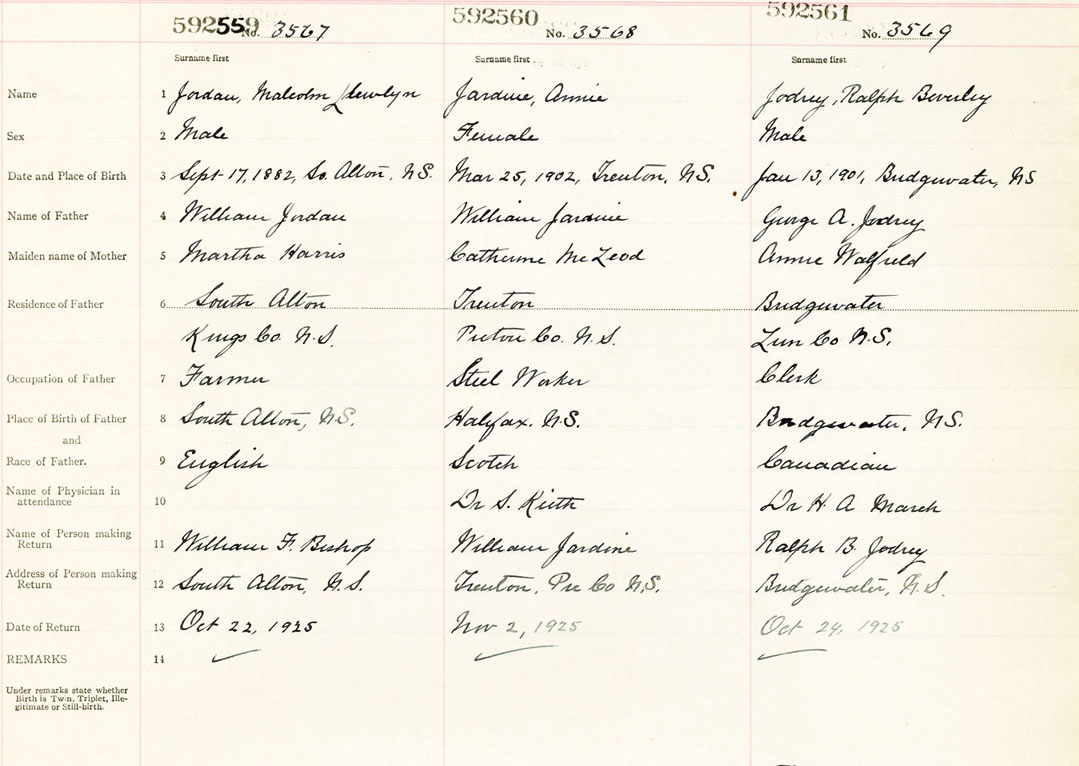 592559 592560 592561
No. 3567 No. 3568 No. 3569
Surname first Surname first Surname first
Name 1 Jordan, Malcolm Llewlyn Jardine, Annie Jodrey, Ralph Beverley
Sex 2 Male Female Male
Date and Place of Birth 3 Sept 17, 1882, So. Alton, N.S. Mar 25, 1902, Trenton, N.S. Jan 13, 1901, Bridgewater, NS
Name of Father 4 William Jordan William Jardine George A. Jodrey
Maiden name of Mother 5 Martha Harris Catherine McLeod Annie Walfield
Residence of Father 6 South Alton Trenton Bridgewater
Kings Co. N.S. Pictou Co. N.S. Lun Co N.S.
Occupation of Father 7 Farmer Steel Worker Clerk
Place of Birth of Father 8 South Alton, N.S. Halifax. N.S. Bridgewater, N.S.
and
Race of Father. 9 English Scotch Canadian
Name of Physician in
attendance 10 Dr S. Keith Dr H. A March
Name of Person making
Return 11 William F. Bishop William Jardine Ralph B. Jodrey
Address of Person making
Return 12 South Alton, N.S. Trenton, Pic Co N.S. Bridgewater, N.S.
Date of Return 13 Oct 22, 1925 Nov 2, 1925 Oct 24, 1925
REMARKS 14
Under remarks state whether
Birth is Twin, Triplet, Ille-
gitimate or Still-birth.